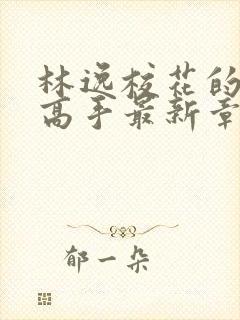 林逸校花的
高手最新章
郁一朵